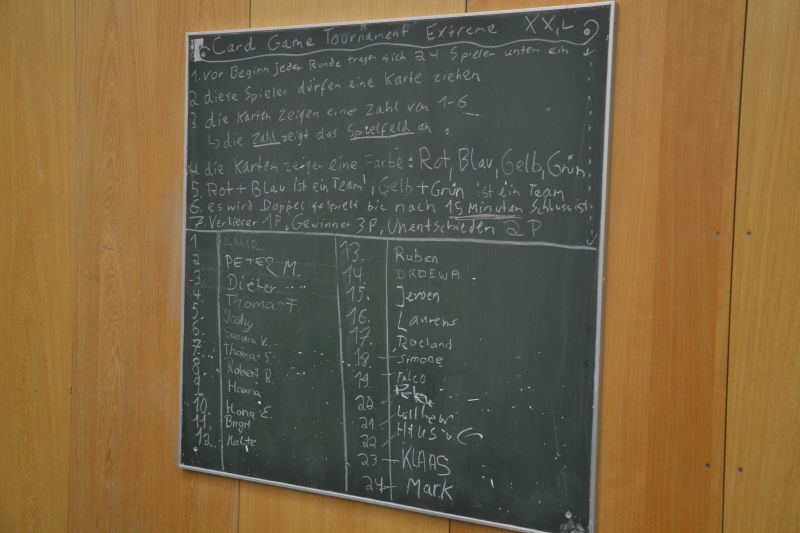 Card Game Tournament Extreme XXL
1. vor Beginn jeder Runde tragen sich 24 Spieler unten ein
2 diese Spieler dürfen eine Karte ziehen
3 die Karten zeigen eine Zahl von 1-6
↳ die Zahl zeigt das Spielfeld an
4 die Karten zeigen eine Farbe: Rot, Blau, Gelb, Grün,
5. Rot + Blau ist ein Team; Gelb + Grün ist ein Team
6. es wird Doppel gespielt bis nach 15 Minuten Schluss ist
7. Verlierer 1P, Gewinner 3P, Unentschieden 2P
1
2 PETER M.
3. Dieter
4. Thomas F.
5. Joshy
6.
7. Thomas S.
8. Robert R.
9. Hanna
10. Hana E.
11. Birgit
12. Malte
13. Ruben
14. DRDEWA
15. Jeroen
16. Laurens
17. Roeland
18 Simone
19. FALCO
20
21
22
23. KLAAS
24 Mark